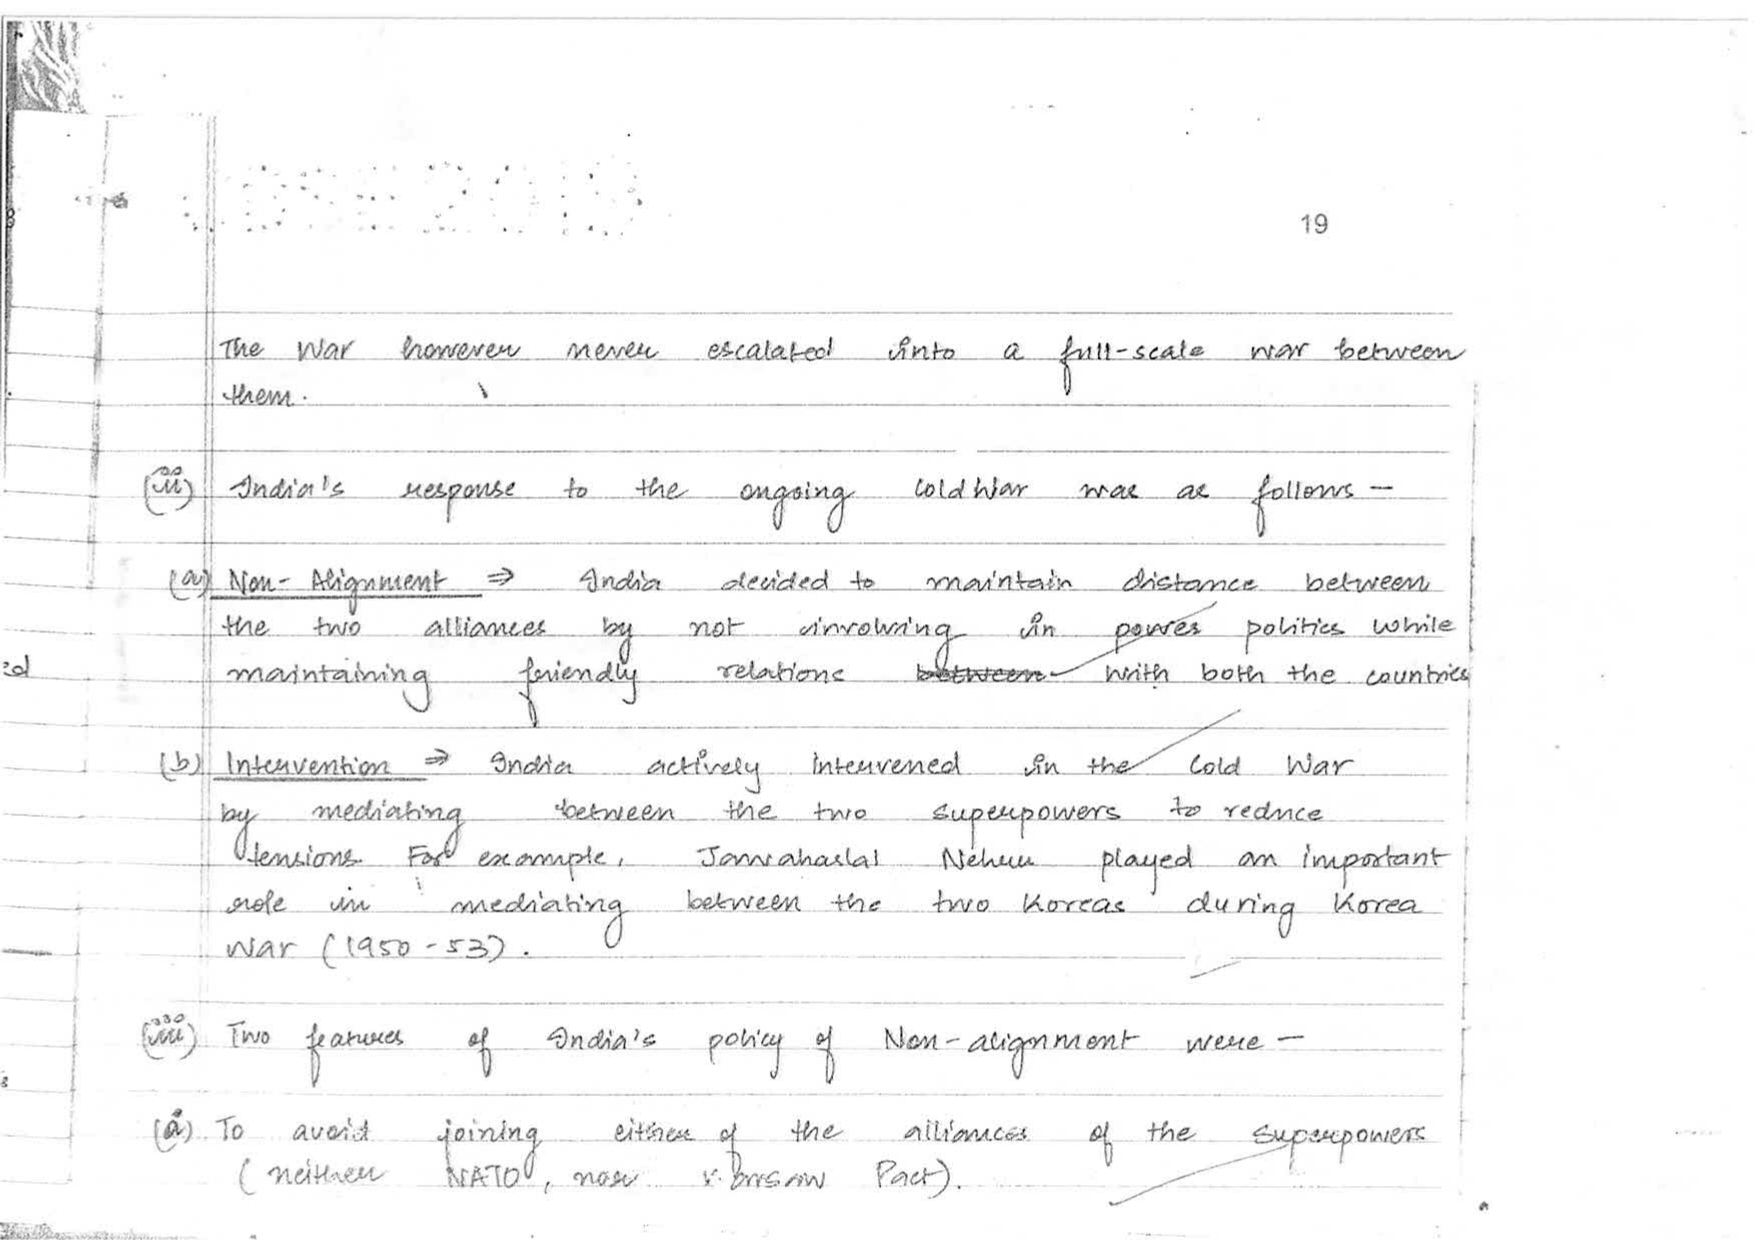 19
The War however never escalated into a full-scale war between
them.
(ii) India's response to the ongoing Cold War was as follows -
(a) Non-Alignment ⇒ India decided to maintain distance between
the two alliances by not involving in power politics while
maintaining friendly relations between with both the countries
(b) Intervention ⇒ India actively intervened in the Cold War
by mediating between the two superpowers to reduce
tensions. For example, Jawaharlal Nehru played an important
role in mediating between the two Koreas during Korea
War (1950-53).
(iii) Two features of India's policy of Non-alignment were -
(a) To avoid joining either of the alliances of the superpowers
(neither NATO, nor Warsaw Pact).